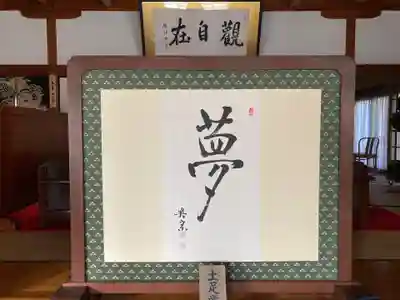 觀自在
夢
土足